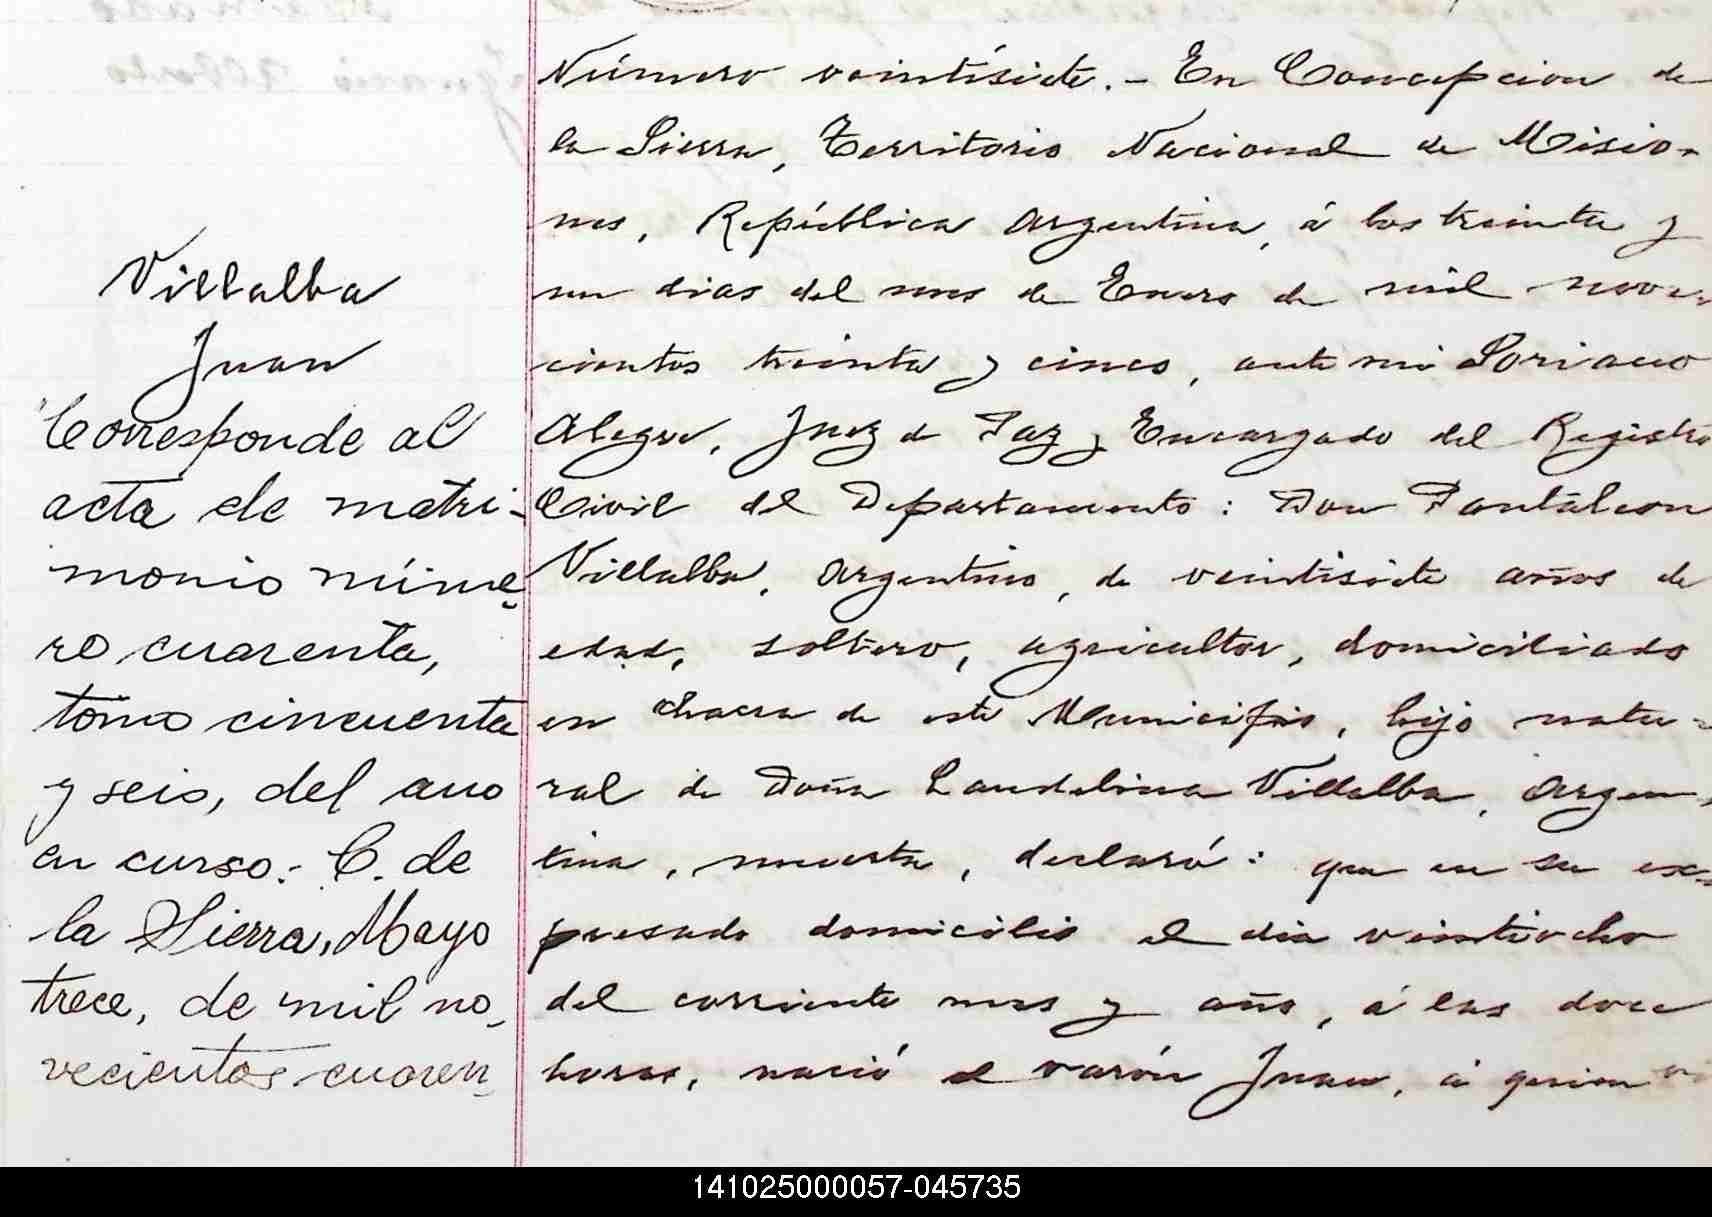 Villalba
Juan
Corresponde al
acta de matri-
monio núme-
ro cuarenta,
tomo cincuenta
y seis, del ano
en curso.- C. de
la Sierra, Mayo
trece, de mil no-
vecientos cuaren-
Número veintisiete.- En Concepcion de
la Sierra, Territorio Nacional de Misio-
nes, República Argentina, á los treinta y
un dias del mes de Enero de mil nove-
cientos treinta y cinco, ante mi
Alegre, Juez de Paz y Encargado del Registro
Civil del Departamento: Don Pantaleon
Villalba, Argentino, de veintisiete años de
edad, soltero, agricultor, domiciliado
en chacra de este Municipio, hijo natu-
ral de Doña Laudelina Villalba, Argen-
tina, muerta, declaró: que en su ex-
presado domicilio el dia veintiocho
del corriente mes y año, á las doce
horas, nació el varón Juan, á quien
141025000057-045735